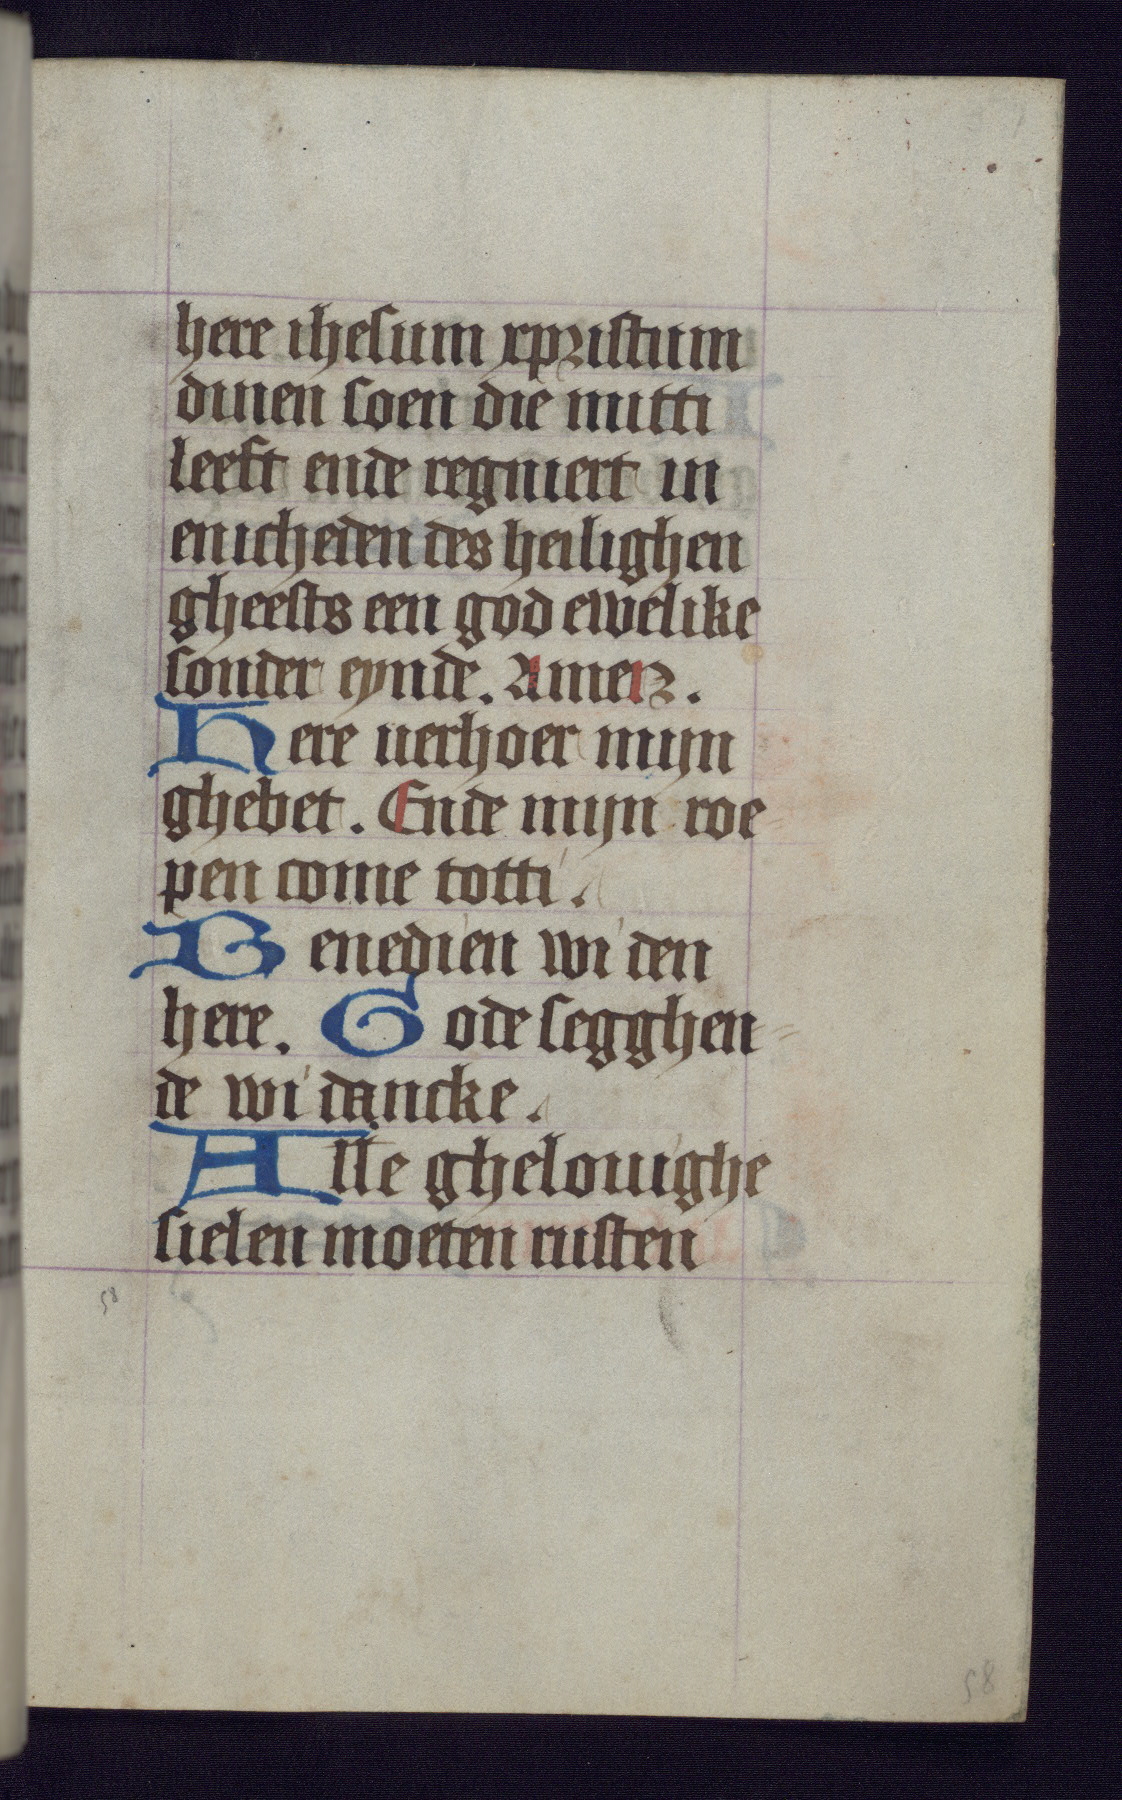 here ihesum xpristum
dinen soen die mitti
leeft ende regniert in
enicheden des heilighen
gheests een god ewelike
sonder eynde. Amen.
Here uerhoer mijn
ghebet. Ende mijn roe
pen come totti.
Benedien wi den
here. Gode segghen
de wi dancke.
Alle ghelouighe
sielen moeten rusten
58
58